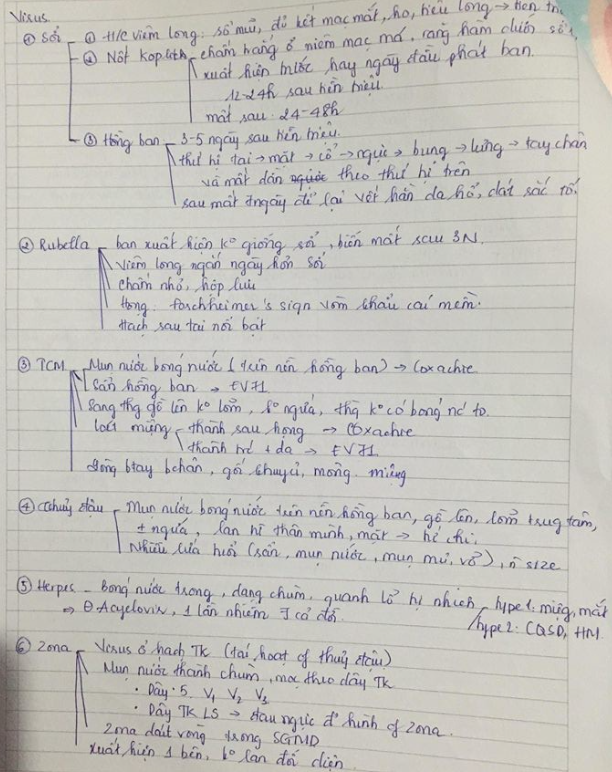 Virus
① Sởi ① H/C viêm long: sổ mũi, đỏ kết mạc mắt, ho, tiêu lỏng → tiền tr
② Nốt Koplik chấm trắng ở niêm mạc má, răng hàm dưới số
xuất hiện trước hay ngày đầu phát ban.
12-24h sau tiền triệu
mất sau 24-48h
③ Hồng ban 3-5 ngày sau tiền triệu.
thứ tự tai → mặt → cổ → ngực → bụng → lưng → tay chân
và mất dần theo thứ tự trên
sau mất để lại vết hằn da hổ, dát sắc tố.
② Rubella ban xuất hiện k° giống sởi, biến mất sau 3N.
Viêm long ngắn ngày hơn sởi
chấm nhỏ, hợp lưu
Họng: forchheimer's sign vòm khẩu cái mềm.
Hạch sau tai nổi bật
③ TCM Mụn nước bóng nước (trên nền hồng ban) → Coxachie
Sẩn hồng ban → EV71
Sang thg gồ lên k° lõm, k° ngứa, thg k° có bóng nc to.
loét miệng thành sau họng → Coxachie
thành trc + da → EV71
lòng btay bchân, gối khuỷu, mông, miệng
④ Thuỷ đậu Mụn nước bóng nước trên nền hồng ban, gồ lên, lõm trung tâm,
± ngứa, lan từ thân mình, mặt → tứ chi.
Nhiều lứa tuổi (sẩn, mụn nước, mụn mủ, vỡ), ñ size
⑤ Herpes - Bóng nước trong, dạng chùm, quanh lỗ tự nhiên type 1: miệng, mắt
⇒ θ Acyclovir, 1 lần nhiễm ∃ cả đời. type 2: CQSD, HM
⑥ Zona Virus ở hạch TK (tái hoạt of thuỷ đậu)
Mụn nước thành chùm, mọc theo dây TK
• Dây 5. V1 V2 V3
• Dây TK LS → đau ngực đ hình of Zona.
Zona dait vong trong SGMD
Xuất hiện 1 bên, k° lan đối diện